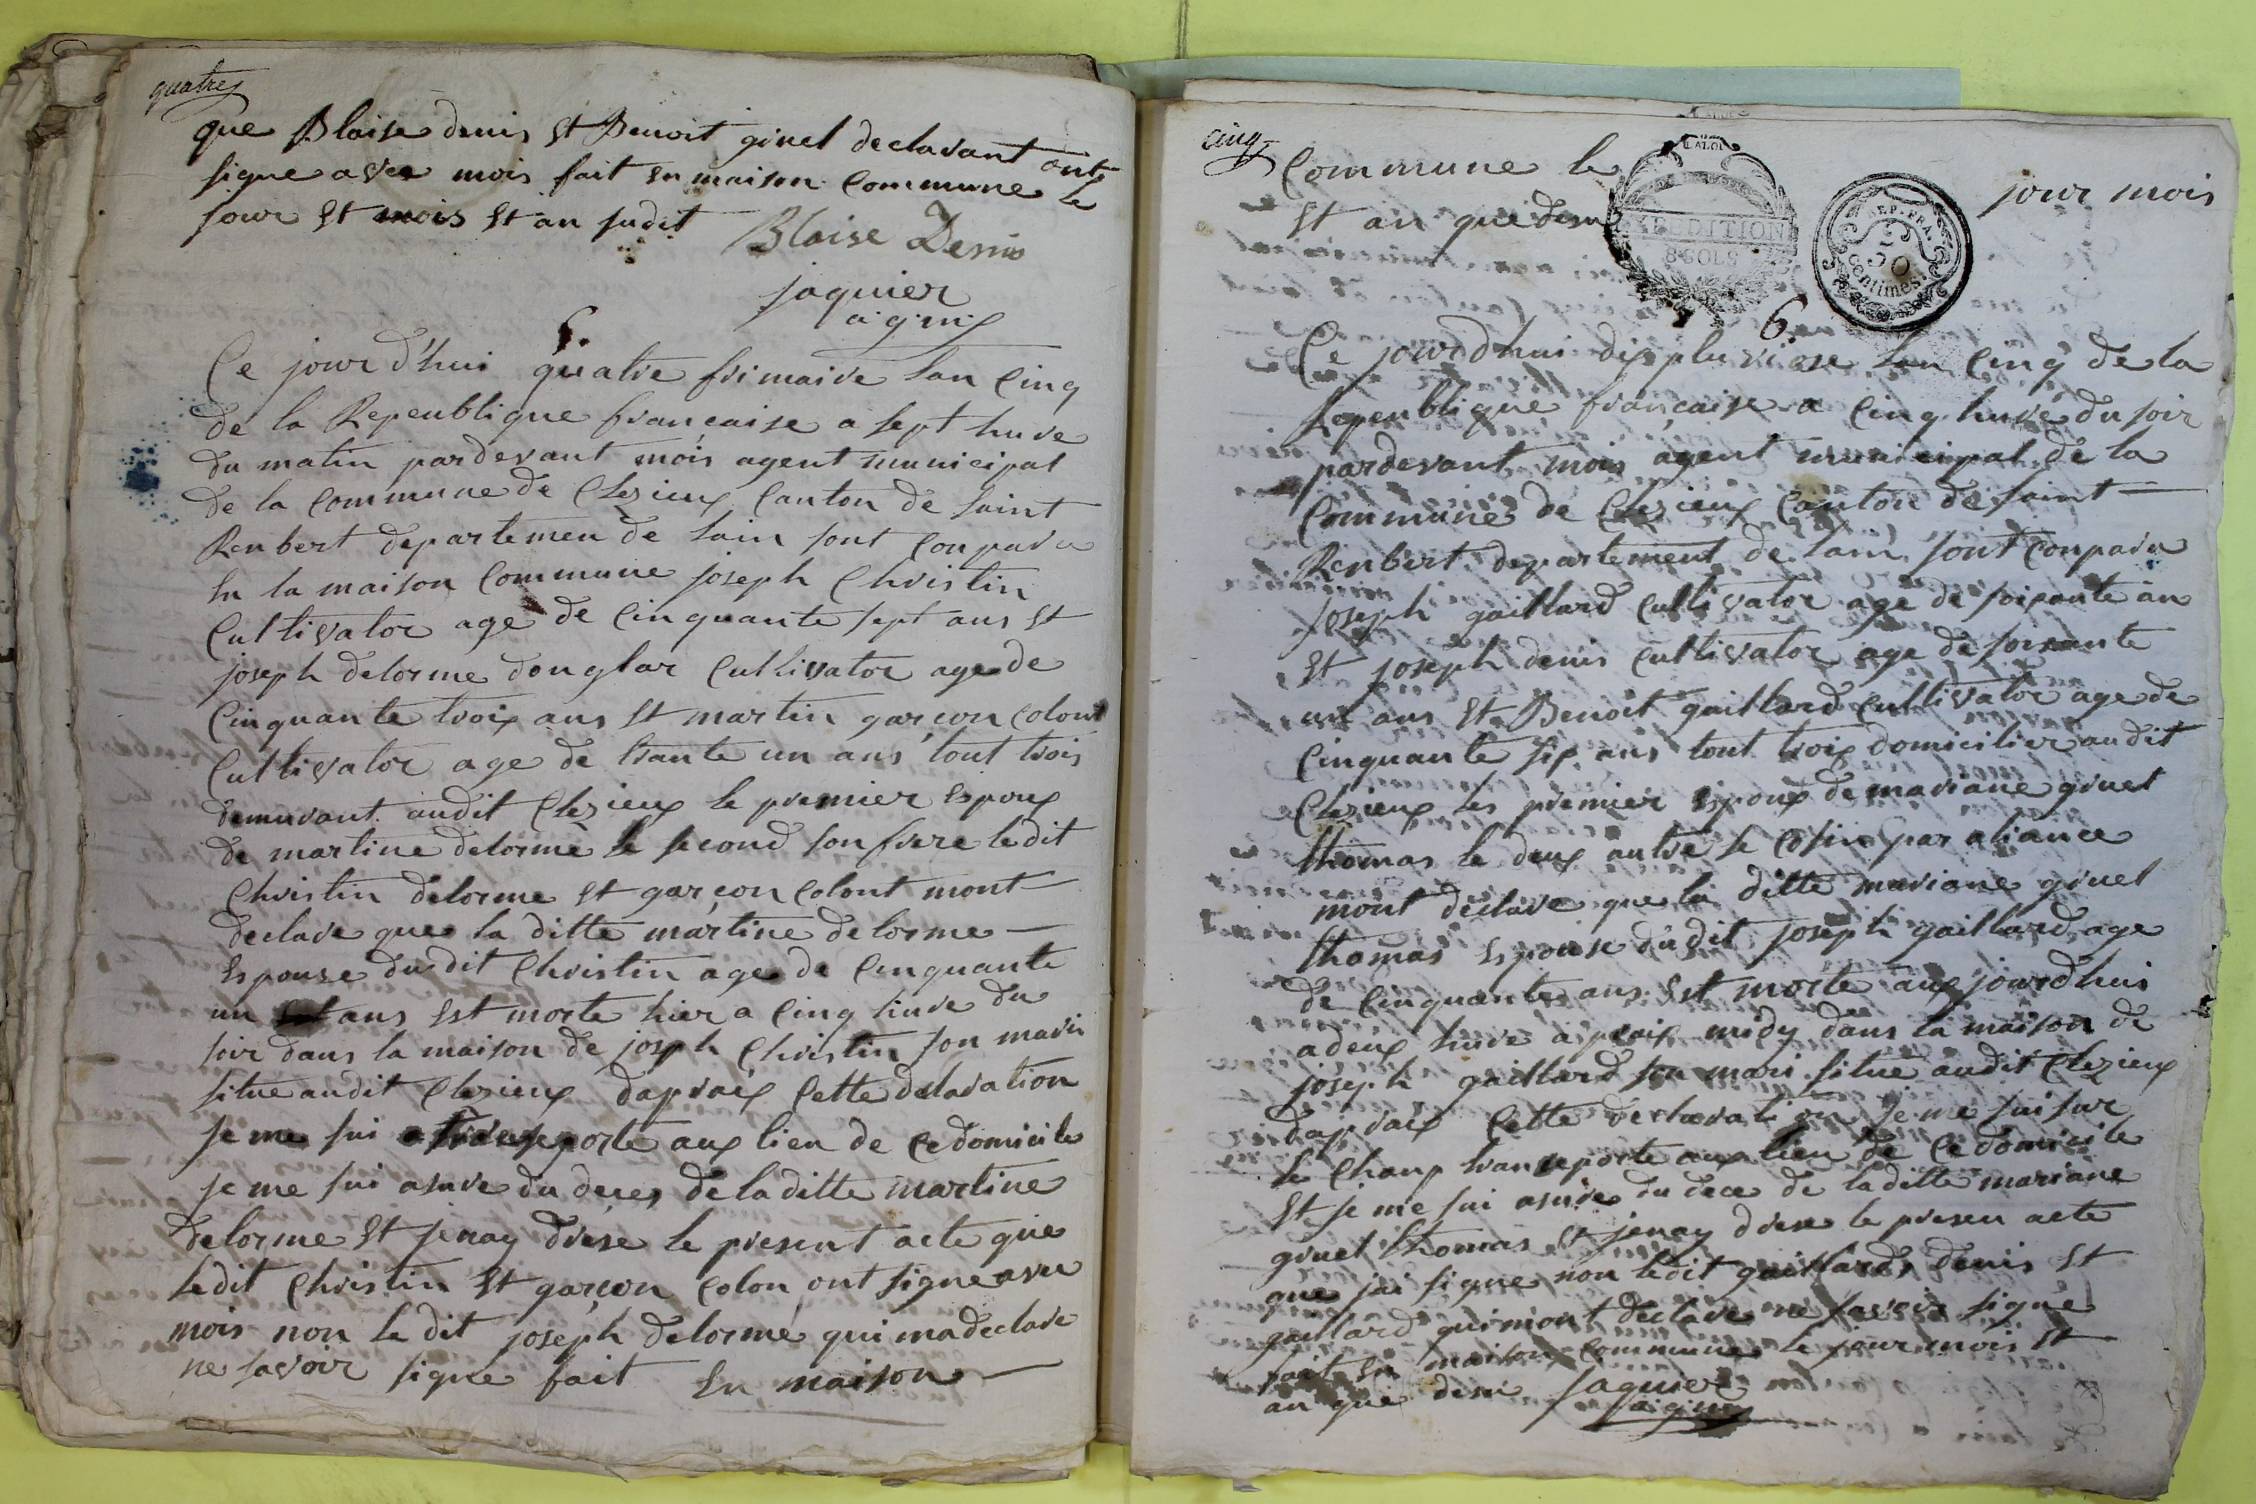 quatre
que Blaise denis et Benoit givel declarant ont
signe avec mois fait en maison commune le
jour et mois et an sudit
Blaise Denis
jaquier
agm
Ce jour d'hui quatre frimaire lan cinq
de la Repeublique française a sept heure
du matin pardevant mois agent municipal
de la commune de Clezieux Canton de saint
Renbert departemen de lain sont conparu
en la maison commune joseph Christin
cultivator age de cinquante sept ans et
joseph delorme douglar cultivator age de
cinquante trois ans et martin garçon colont
cultivator age de trante un ans tout trois
demurant audit Clezieux le premier espoux
de martine delorme le second son frere ledit
Christin delorme et garçon colont mont
declare que la ditte martine delorme
espouse dudit Christin age de cinquante
un ans est morte hier a cinq hure du
soir dans la maison de joseph Christin son maris
situe audit Clezieux dapraix cette delaration
je me sui transeporte aux lieu de ce domicile
je me sui asure du deces de laditte martine
delorme et jenay drese le present acte que
ledit Christin et garçon colon ont signe avec
mois non le dit joseph delorme qui ma declare
ne savoir signe fait en maison
cinq
Commune le jour mois
et an que desu
LA LOI
EXPEDITION
8 SOLS
REP. FRA.
50
centimes
6
Ce jourdhui dix pluviose lan cinq de la
Repeublique française a cinq hure du soir
pardevant mois agent municipal de la
commune de Clezieux Canton de saint
Renbert departement de lain sont conparu
joseph gaillard cultivator age de soixante an
et joseph denis cultivator age de soixante
un ans et Benoit gaillard cultivator age de
cinquante six ans tout trois domicilier audit
Clezieux les premier espoux de mariane givet
thomas le deux autre le cosin par aliance
mont declare que la ditte mariane givet
thomas espouse dudit joseph gaillard age
de cinquante ans est morte aux jourdhui
a deux hure apraix midy dans la maison de
joseph gaillard son mari situe audit Clezieux
dapraix cette declaration je me sui sur
le chanp transeporte aux lieu de ce domicile
et je me sui asure du dece de laditte mariane
givet thomas et jenay drese le presen acte
que jai signe non ledit gaillard denis et
gaillard qui mont declare ne savoir signe
fait en maison commune le jour mois et
an que desu jaquier
agm